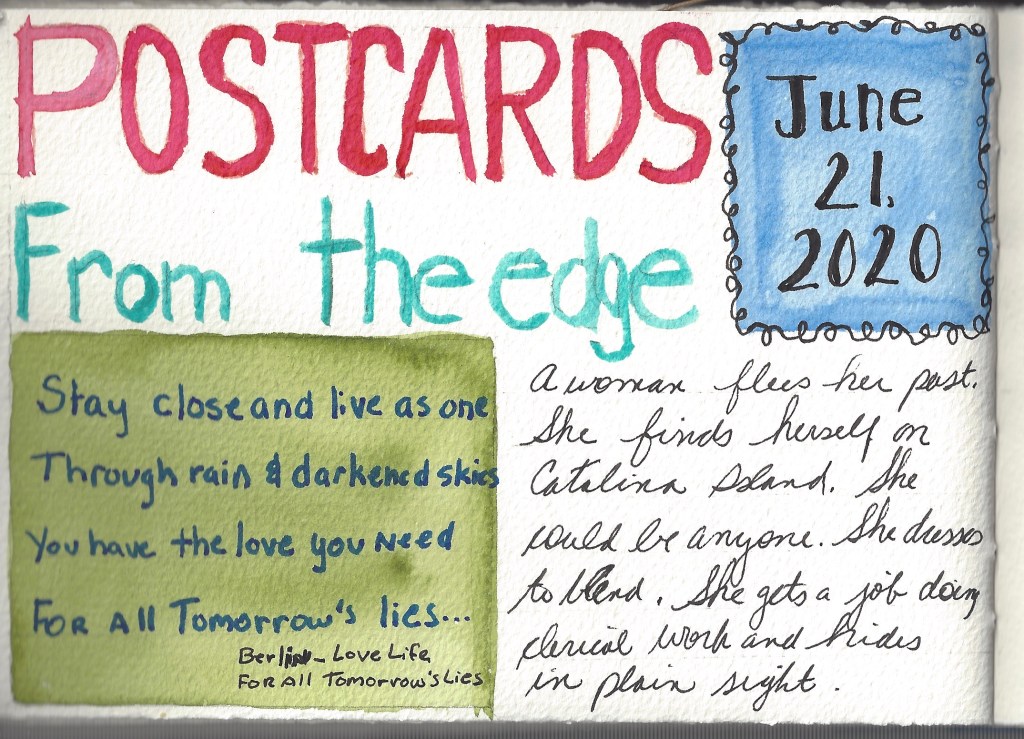 POSTCARDS
From the edge
June
21,
2020
Stay close and live as one
Through rain & darkened skies
You have the love you Need
FOR All Tomorrow's lies...
Berlin - Love Life
FOR All Tomorrow's Lies
A woman flees her past.
She finds herself on
Catalina Island. She
could be anyone. She dresses
to blend. She gets a job doing
clerical work and hides
in plain sight.